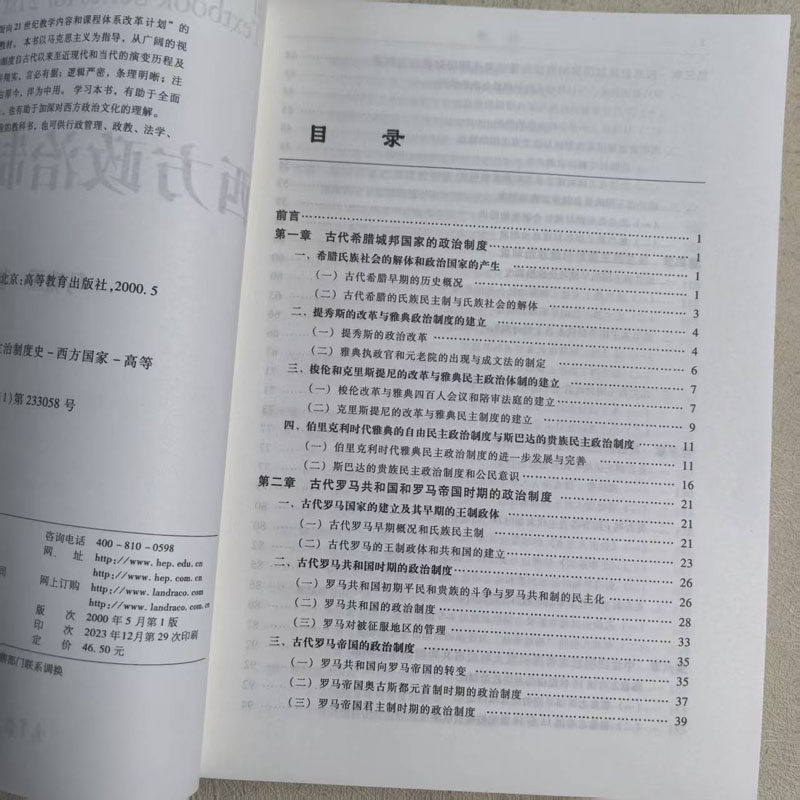 Textbook
面向21世纪教学内容和课程体系改革计划”的
教材。本书以马克思主义为指导，从广阔的视
制度自古代以来至近现代和当代的演变历程及
翔实，言必有据；逻辑严密，条理明晰；注
古厚今，洋为中用。学习本书，有助于全面
，也有助于加深对西方政治文化的理解。
的教科书，也可供行政管理、政教、法学、
西方政治制
北京：高等教育出版社，2000.5
政治制度史－西方国家－高等
1)第233058号
咨询电话 400-810-0598
网 址 http://www.hep.edu.cn
http://www.hep.com.cn
网上订购 http://www.landraco.com
http://www.landraco.com.cn
版 次 2000年5月第1版
印 次 2023年12月第29次印刷
定 价 46.50元
部门联系调换
目 录
前言……1
第一章 古代希腊城邦国家的政治制度……1
一、希腊氏族社会的解体和政治国家的产生……1
（一）古代希腊早期的历史概况……1
（二）古代希腊的氏族民主制与氏族社会的解体……3
二、提秀斯的改革与雅典政治制度的建立……4
（一）提秀斯的政治改革……4
（二）雅典执政官和元老院的出现与成文法的制定……6
三、梭伦和克里斯提尼的改革与雅典民主政治体制的建立……7
（一）梭伦改革与雅典四百人会议和陪审法庭的建立……7
（二）克里斯提尼的改革与雅典民主制度的建立……9
四、伯里克利时代雅典的自由民主政治制度与斯巴达的贵族民主政治制度……11
（一）伯里克利时代雅典民主政治制度的进一步发展与完善……11
（二）斯巴达的贵族民主政治制度和公民意识……16
第二章 古代罗马共和国和罗马帝国时期的政治制度……21
一、古代罗马国家的建立及其早期的王制政体……21
（一）古代罗马早期概况和氏族民主制……21
（二）古代罗马的王制政体和共和国的建立……23
二、古代罗马共和国时期的政治制度……26
（一）罗马共和国初期平民和贵族的斗争与罗马共和制的民主化……26
（二）罗马共和国的政治制度……28
（三）罗马对被征服地区的管理……33
三、古代罗马帝国的政治制度……35
（一）罗马共和国向罗马帝国的转变……35
（二）罗马帝国奥古斯都元首制时期的政治制度……37
（三）罗马帝国君主制时期的政治制度……39